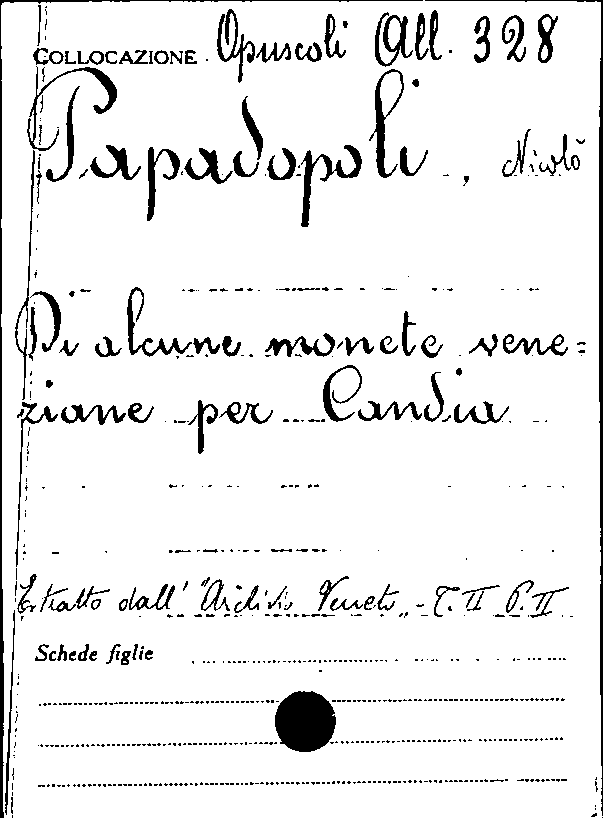 COLLOCAZIONE. Opuscoli All. 328
Papadopoli, Nicolò
Di alcune monete vene=
ziane per Candia
Estratto dall' "Archivio Veneto" - T. II P. II
Schede figlie